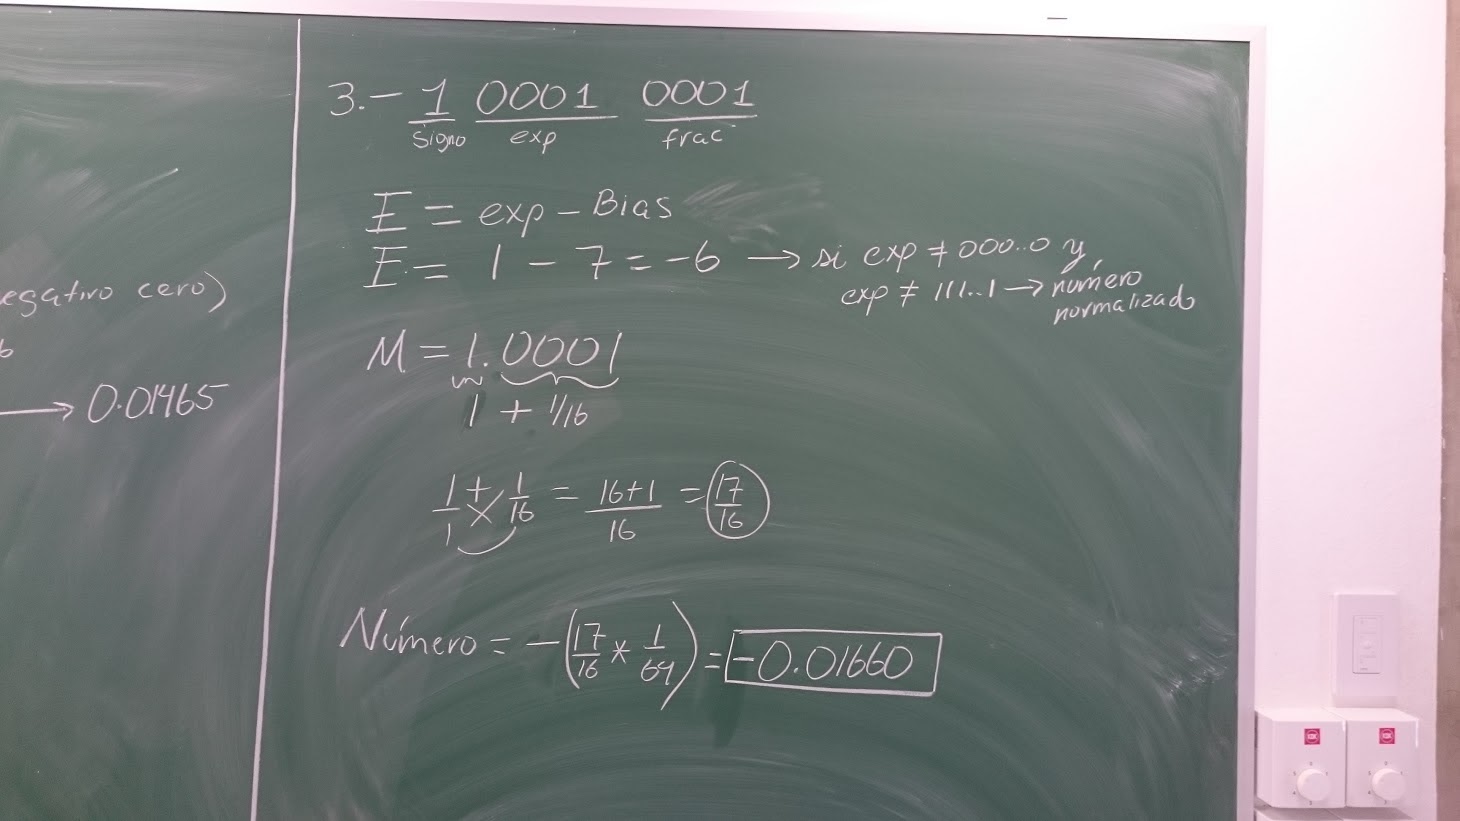 egativo cero)
6
→ 0.01465
3.- 1 0001 0001
signo exp frac
E = exp - Bias
E = 1 - 7 = -6 → si exp ≠ 000..0 y
exp ≠ 111..1 → número
normalizado
M = 1.0001
1 + 1/16
1/1 + 1/16 = 16+1/16 = 17/16
Número = -(17/16 * 1/64) = -0.01660